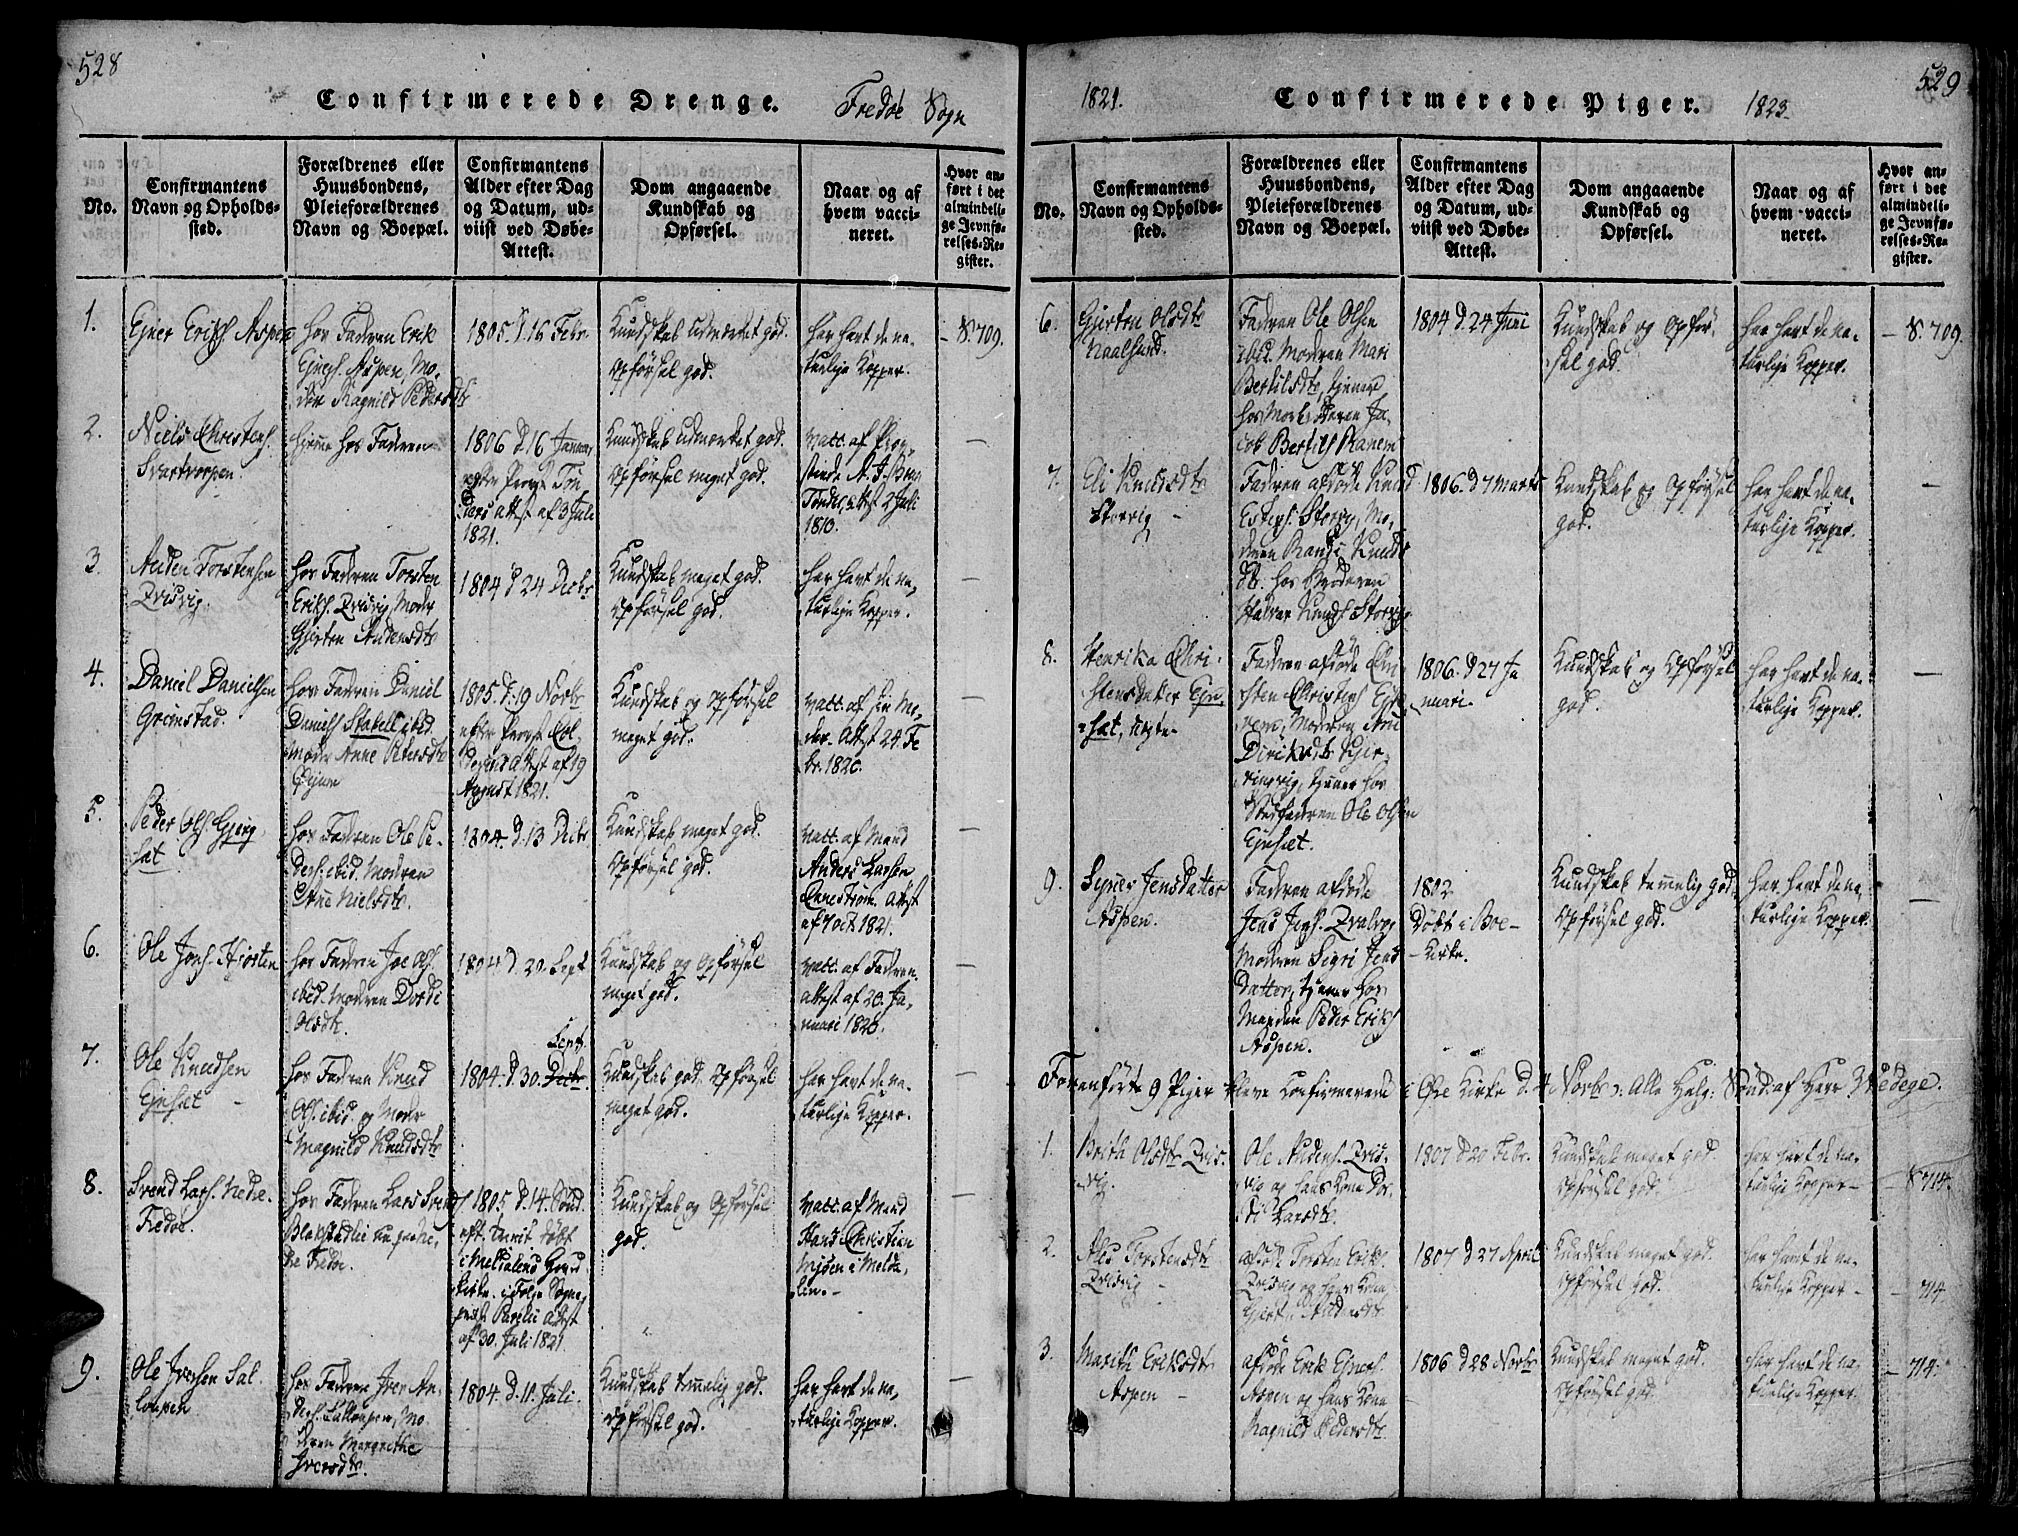 528
Confirmerede Drenge.
Fredøe Sogn
No.
Confirmantens
Navn og Opholds-
sted.
Forældrenes eller
Huusbondens,
Pleieforældrenes
Navn og Boepæl.
Confirmantens
Alder efter Dag
og Datum, ud-
viist ved Døbe-
Attest.
Dom angaaende
Kundskab og
Opførsel.
Naar og af
hvem vacci-
neret.
Hvor an-
ført i det
almindeli-
ge Jevnfø-
relses-Re-
gister.
1.
Ejner Eriks. Aspen
hos Fadren Erik
Ejners. Aspen, Mo-
der Ragnild Pedersdtr
1805. d. 16 Febr.
Kundskab udmærket god.
Opførsel god.
har havt de na-
turlige Kopper.
S. 709.
2.
Niels Christens.
Svartvorpen.
hjemme hos Fadren
1806 d. 16 Januar
efter Provst Ton
attest af 3 Juli
1821.
Kundskab udmærket god.
Opførsel meget god.
vacc. af
Attest 2 Juli
1810.
3.
Auden Torstensen
Qvisvig.
hos Fadren Torsten
Eriks. Qvisvig, Moder
Gjertru Audensdtr
1804 d. 24 Decbr
Kundskab meget god.
Opførsel god.
har havt de na-
turlige Kopper.
4.
Daniel Danielsen
Grimstad.
hos Fadren Daniel
Daniels. Stabell ibid.
Moder Anne Petersdtr
1805. d. 19 Novbr
efter Provst
attest af 19
August 1821.
Kundskab og Opførsel
meget god.
vacc. af sin Mo-
der. Attest 24. Fe
br. 1820.
5.
Peder Ols. Gjørg
sæt
hos Fadren Ole Pe-
ders. ibid. Modren
Ane Nielsdtr.
1804. d. 13 Decbr
Kundskab meget god.
Opførsel god.
vacc. af Mand
Anders Larsen
Attest
af 7 Oct. 1821.
6.
Ole Jons.
hos Fadren Joe Ols.
ibid. Modren Dordi
Olsdtr.
1804 d. 20. Sept
Kundskab og Opførsel
meget god.
vacc. af Fadren.
attest af 20. Ja-
nuari 1820.
7.
Ole Knudsen
Ejnsæt
hos Fadren Knud
Ols. ibid. og Moder
Magnild Knudsdtr
Sept.
1804. d. 30. Decbr.
Kundskab god. Opførsel
meget god.
har havt de na-
turlige Kopper.
8.
Svend Lars. Nedre
Fredøe.
hos Fadren Lars Svends
nu paa Ne-
dre Fredøe.
1805. d. 14. Sönd.
eft. Trinit. døbt
i Meldalens Hoved
kirke. i Følge Sogne
præst. attest
af 30. Juli 1821.
Kundskab og Opførsel
god.
vacc. af Mand
Hans Christian
i Melda-
len.
9.
Ole Iversen Sal
lenpen
hos Fadren Iver An-
ders. Sallenpen, Mo
dren Margrethe
Iversdtr.
1804. d. 11. Juli.
Kundskab temmelig god.
Opførsel god.
har havt de na-
turlige Kopper.
529
1821.
Confirmerede Piger.
1823.
No.
Confirmantens
Navn og Opholds-
sted.
Forældrenes eller
Huusbondens,
Pleieforældrenes
Navn og Boepæl.
Confirmantens
Alder efter Dag
og Datum, ud-
viist ved Døbe-
Attest.
Dom angaaende
Kundskab og
Opførsel.
Naar og af
hvem vacci-
neret.
Hvor an-
ført i det
almindeli-
ge Jevnfø-
relses-Re-
gister.
6.
Gjertru Olsdtr
Naalsund.
Fadren Ole Olsen
ibid. Modren Mari
Bertilsdtr, tjener
hos Morbroderen Ja-
cob Bertils. Ranem
1804 d. 24 Juni
Kundskab og Opfør-
sel god.
har havt de na-
turlige Kopper.
S. 709.
7.
Eli Knudsdtr
Storvig
Fadren afdøde Knud
Storvig, Mo-
deren Randi Knuds
dtr. hos Broderen
Halvor Knuds. Storvig.
1806. d 7 Marts
Kundskab og Opførsel
god.
har havt de na-
turlige Kopper.
8.
Henrika Chri-
stensdatter Ejn-
sæt,
Fadren afdøde Chri
sten Christens.
Modren Ane
Diriksdtr
tjener hos
Stedfadren Ole Olsen
Ejnsæt.
1806. d 27 Ja
nuari.
Kundskab og Opførsel
god.
har havt de na-
turlige Kopper.
9.
Synev Jensdatter
Aspen.
Fadren afdøde
Jens Jens.
Modren Sigri Jens
datter, tjener hos
Manden Peder Eriks.
Aspen.
1802
Døbt i Boe-
Kirke.
Kundskab temmelig god
Opførsel god.
har havt de na-
turlige Kopper.
Foranførte 9 Piger bleve Confirmerede i Øre Kirke d. 4 Novbr: Alle Helg: Sönd. af Herr Wedege.
1.
Brith Olsdtr Qvis-
vig.
Ole Audens. Qvis-
vig og hans Kone Dor-
di Larsdtr.
1807 d 20 Febr.
Kundskab meget god
Opførsel god.
har havt de na-
turlige Kopper
S 714.
2.
Torstensdtr
Qvisvig
afdøde Torsten Eriks.
Qvisvig og hans Kone
Gjertru Audensdtr
1807 d 27 April
Kundskab meget god.
Opførsel god.
har havt de na-
turlige Kopper
714
3.
Marith Eriksdtr
Aspen
afdøde Erik Ejners.
Aspen og hans Kone
Ragnild Pedersdtr.
1806 d 28 Novbr
Kundskab meget god.
Opførsel god.
har havt de na-
turlige Kopper.
714